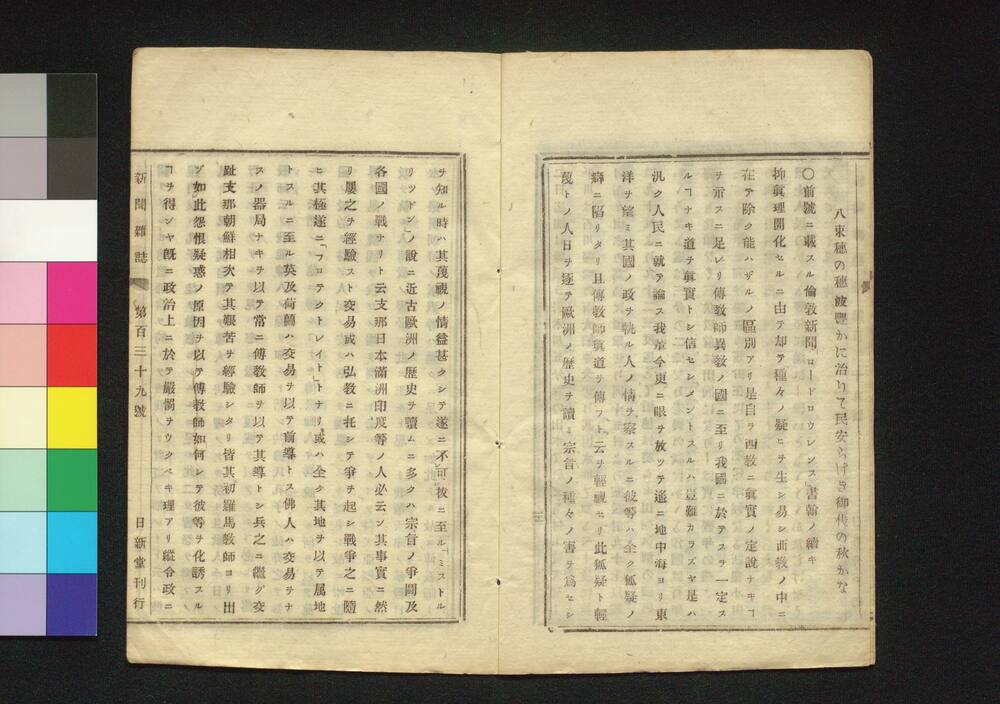 八束穂の穂波豐かに治りて民安らけき御代の秋かな
〇前號ニ載スル倫敦新聞「ロードロウレンス」書翰ノ續キ
抑眞理開化セルニ由テ却テ種々ノ疑ヒヲ生シ易シ西敎ノ中ニ
在テ除ク能ハザルノ區別アリ是自ラ西敎ニ眞實ノ定說ナキヿ
ヲ示スニ足レリ傳敎師異敎ノ國ニ至リ我國ニ於テスラ一定ス
ルヿナキ道ヲ眞實トシ信セシメントスルハ豈難カラズヤ是ハ
汎ク人民ニ就テ論ス我輩今更ニ眼ヲ放ツテ遙ニ地中海ヨリ東
洋ヲ望ミ其國ノ政ヲ執ル人ノ情ヲ察スルニ彼等ハ全ク狐疑ノ
癖ニ陷リタリ且傳敎師眞道ヲ傳フト云ヲ輕視セリ此狐疑ト輕
蔑トノ人日ヲ逐テ歐洲ノ歷史ヲ讀ミ宗旨ノ種々ノ害ヲ爲セシ
ヲ知ル時ハ其蔑視ノ情益甚クシテ遂ニ不可拔ニ至ル「ミストル
リツドン」ノ說ニ近古歐洲ノ歷史ヲ讀ムニ多クハ宗旨ノ爭鬪及
各國ノ戰ナリト云支那日本滿洲印度等ノ人必云ン其事實ニ然
リ屢之ヲ經驗スト交易或ハ弘敎ニ托シテ爭ヲ起シ戰爭之ニ隨
ヒ其極遂ニ「プロテクトレイト」トナリ或ハ全ク其地ヲ以テ属地
トスルニ至ル英及荷蘭ハ交易ヲ以テ前導トス佛人ハ交易ヲナ
スノ器局ナキヲ以テ常ニ傳敎師ヲ以テ其導トシ兵之ニ繼グ交
趾支那朝鮮相次テ其艱苦ヲ經驗シタリ皆其初羅馬敎師ヨリ出
ヅ如此怨恨疑惑ノ原因ヲ以テ傳敎師如何シテ彼等ヲ化誘スル
ヿヲ得ンヤ旣ニ政治上ニ於テ嚴罰ヲウクベキ理アリ縱令政ニ
新聞雜誌 第百三十九號 日新堂刊行